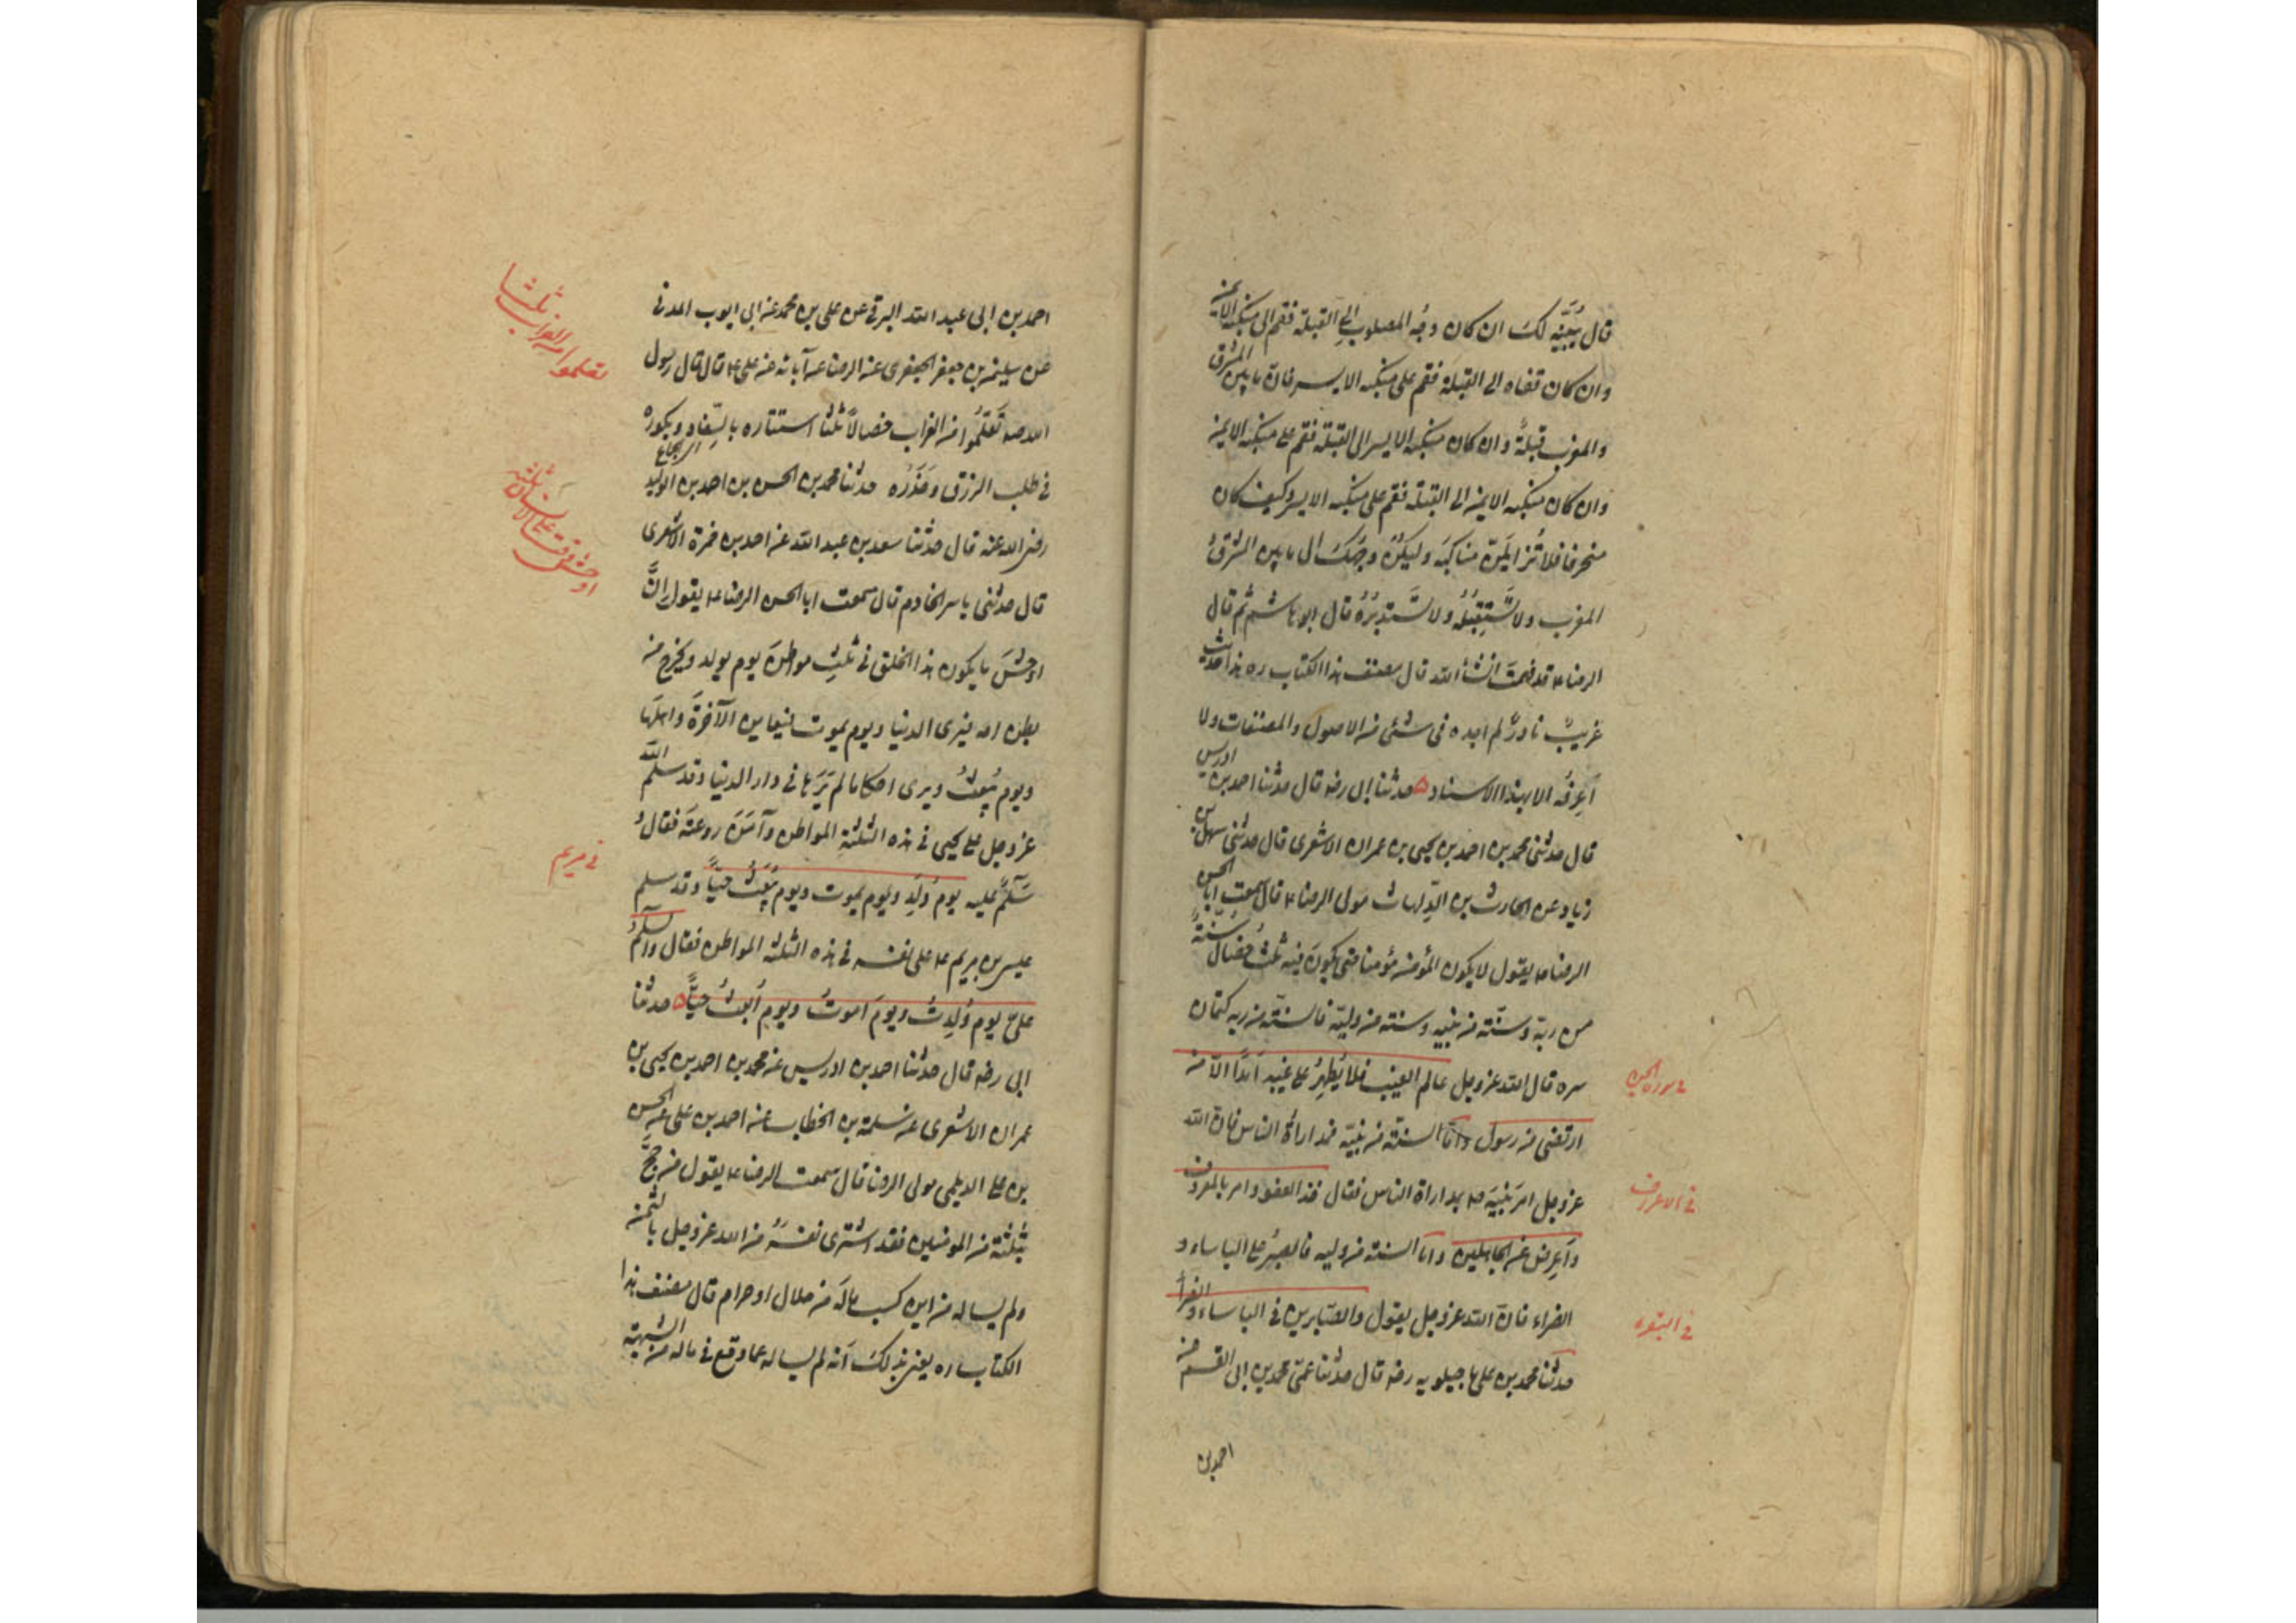 قال يُبَيَّنه لك ان كان وجُه المصلوب الى القبلة فقم على منكبه الايمن
وان كان قفاه الى القبلة فقم على منكبه الايسر فان ما بين المشرق
والمغرب قبلةً وان كان منكبه الايسر الى القبلة فقم على منكبه الايمن
وان كان منكبه الايمن الى القبلة فقم على منكبه الايسر وكيف كان
منحرفا فلا تُزايلَنّ مناكبَه وليكُنْ وجهَكَ الى ما بين المشرق
المغرب ولا تَستِقبِلْهُ ولا تَستدبِرْهُ قال ابو هاشم ثم قال
الرضا ع قد فهمتَ انشأ الله قال مصنف هذا الكتاب ره هذا حديث
غريبٌ نادرٌ لم اجده فى شئى من الاصول والمصنفات ولا
اَعرِفُه الا بهذا الاسناد ۵ حدثنا ابى رضه قال حدثنا احمد بن ادريس
قال حدثنى محمد بن احمد بن يحيى بن عمران الاشعرى قال حدثنى سهل بن
زياد عن الحارث بن الدِّلهاث مولى الرضا ع قال سمعت ابا الحسن
الرضا ع يقول لا يكون المؤمن مؤمنا حتى يكونَ فيه ثلثُ خصال سُنّةٌ
من ربهّ وسنّته من نبيه وسنته من وليّه فالسنّته من ربه كتمان
سره قال الله عزوجل عالم الغيب فلا يُظهِرُ على غيبه اَحَدًا الّا من
ارتضى من رسول واَمّا السنّته من نبيّه فمداراةُ الناس فان الله
عزوجل امَر نَبيّه ص بمداراة الناس فقال خذ العفو وامر بالمعروف
واَعرِض عن الجاهلين واَمّا السنته من وليه فالصبرُ على الباساء و
الضراء فان الله عزوجل يقول والصّابرين فى الباساء والضرأ
حدثنا محمد بن على ماجيلويه رضه قال حدثنا عمّى محمد بن ابى القسم عن
احمد بن
فى سورة الجن
فى الاعراف
فى البقرة
احمد بن ابى عبد الله البرقى عن على بن محمد عن ابى ايوب المدنى
عن سليمن بن جعفر الجعفرى عن الرضا عن آبائه عن على ع قال قال رسول
الله صه تَعَلّمُوا من الغراب خصالًا ثلثًا استتاره بالسِّفادِ وبكوره
اى الجماع
فى طلب الرزق وحَذَرُه حدثنا محمد بن الحسن بن احمد بن الوليد
رضى الله عنه قال حدثنا سعد بن عبد الله عن احمد بن حمزة الاشعرى
قال حدثنى ياسر الخادم قال سمعت ابا الحسن الرضا ع يقول انَّ
اوحشَ ما يكون هذا الخلق فى ثلثِ مواطنَ يوم يولد ويخرج من
بطن امه فيرى الدنيا ويوم يموت فيعاين الآخرةَ واهلَها
ويوم يُبعثُ ويرى احكاما لم يَرَها فى دار الدنيا وقد سلّم الله
عزوجل على يحيى فى هذه الثلثةِ المواطن وآمَنَ روعتَه فقالَ
سَلامٌ عليه يوم وُلِدَ ويوم يموت ويوم يُبعَثُ حيّاً وقد سلم
عيسى بن مريم ع على نفسه فى هذه الثلثه المواطن فقال والسلامُ
علىّ يوم وُلِدتُ ويومَ اَموتُ ويوم اُبعثُ حيّاً ۵ حدثنا
ابى رضه قال حدثنا احمد بن ادريس عن محمد بن احمد بن يحيى بن
عمران الاشعرى عن سلمة بن الخطاب عن احمد بن على عن الحسن
بن على الديلمى مولى الرضا قال سمعت الرضا ع يقول من حجَّ
بثلثة من المومنين فقد اشترى نفسَهُ من الله عزوجل بالثمن
ولم يساله من اين كسب مالَه من حلال او حرام قال مصنف هذا
الكتاب ره يعنى بذلكَ اَنه لم يساله عما وقع فى ماله من الشبهته
تعلموا من الغراب ثلثا
اوحش وقت على الانسان ثلثه
فى مريم